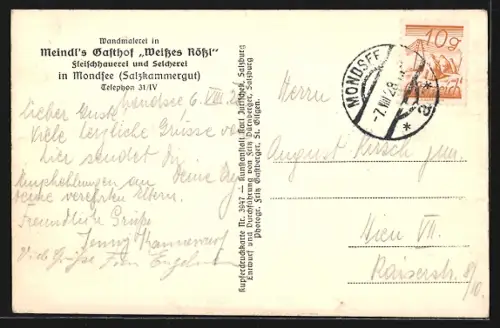 Wandmalerei in
Meindl's Gasthof „Weißes Rößl"
Fleischhauerei und Selcherei
in Mondsee (Salzkammergut)
Telephon 31/IV
Mondsee 6. VIII. 28
Lieber Gustl
Viele herzliche Grüsse von
hier sendet dir
Deine
Empfehlungen an
deine verehrten Eltern.
Freundliche Grüße
Jenny
Viele Grüße Engelmann
Kupferdruckkarte Nr. 3947 — Kunstanstalt Karl Jurischek, Salzburg
Entwurf und Durchführung von Fritz Dürnberger, Salzburg
Photogr. Fritz Gastberger, St. Gilgen.
10g
MONDSEE
-7.VIII.28
Herrn
August jun.
Wien VII.
Kaiserstr. 8/10.